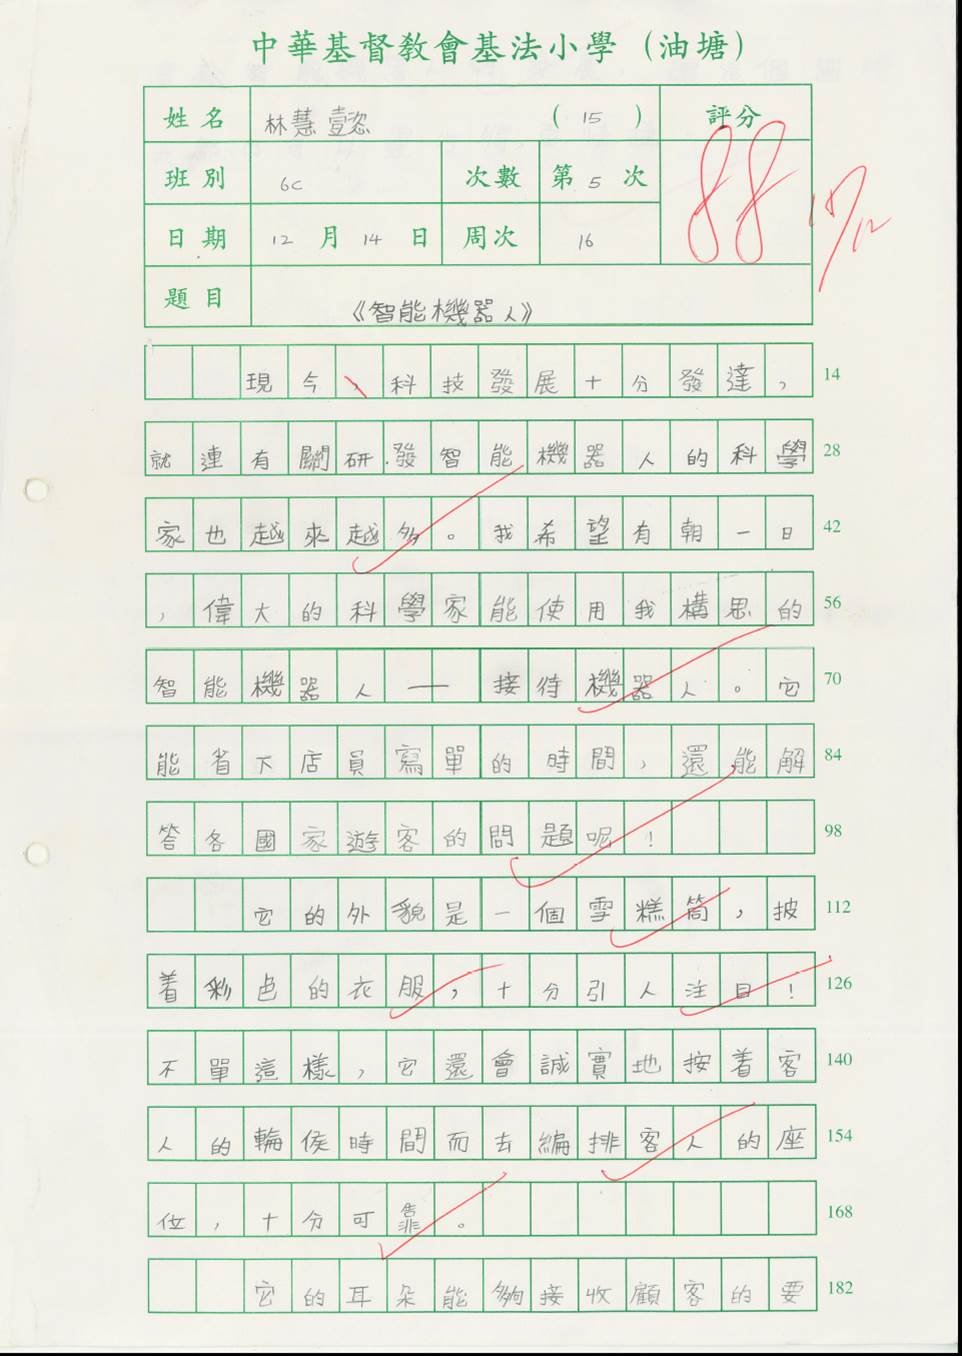 中華基督教會基法小學（油塘）
姓名 林慧壹恣 （ 15 ） 評分
88
班別 6C 次數 第 5 次
17/12
日期 12 月 14 日 周次 16
題目 《智能機器人》
現今，科技發展十分發達， 14
就連有關研發智能機器人的科學 28
家也越來越多。我希望有朝一日 42
，偉大的科學家能使用我構思的 56
智能機器人——接待機器人。它 70
能省下店員寫單的時間，還能解 84
答各國家遊客的問題呢！ 98
它的外貌是一個雪糕筒，披 112
着彩色的衣服，十分引人注目！ 126
不單這樣，它還會誠實地按着客 140
人的輪侯時間而去編排客人的座 154
位，十分可靠。 168
它的耳朵能夠接收顧客的要 182